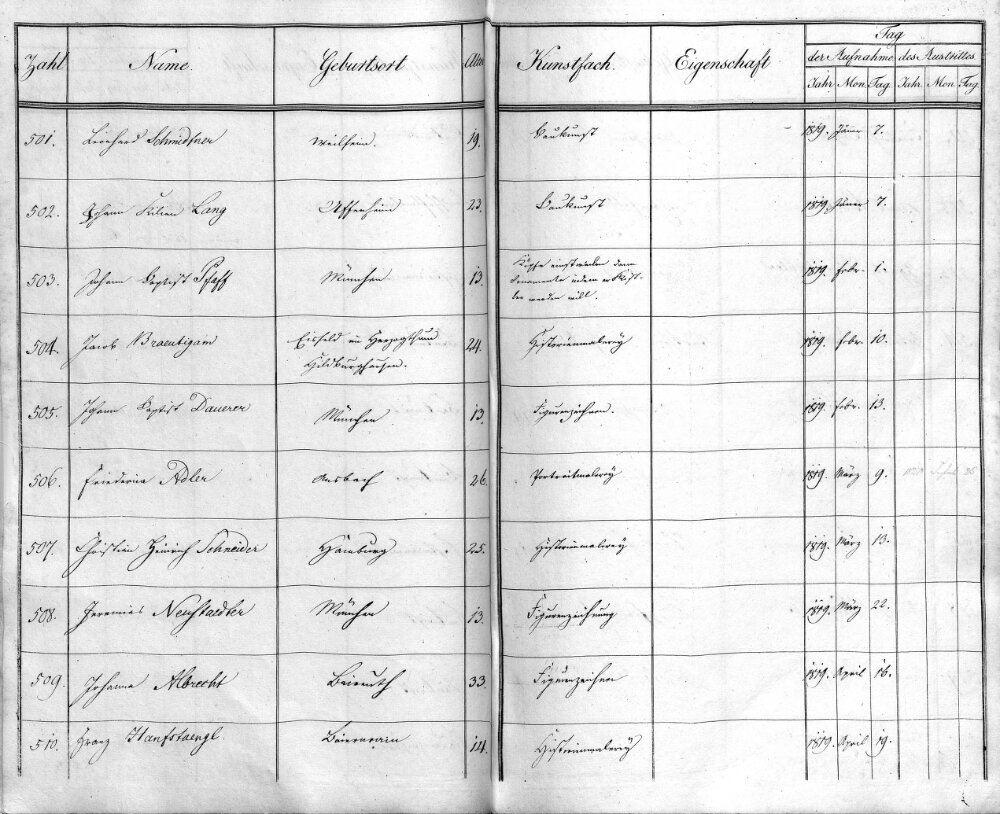 Zahl Name. Geburtsort Alter Kunstfach. Eigenschaft Tag
der Aufnahme des Austrittes
Jahr Mon. Tag. Jahr. Mon. Tag.
501. Leonhard Schmidtner Weilheim. 19. Baukunst 1819. Jäner 7.
502. Johann Kilian Lang Uffenheim 23. Baukunst 1819. Jäner 7.
503. Johann Baptist Pfaff München 13. Köpfe einstweilen dann
Ornamente indem er
werden will. 1819. Febr. 1.
504. Jacob Braeutigam Eisfeld im Herzogthum
Hildburghausen. 24. Historienmalerey 1819. Febr. 10.
505. Johann Baptist Dauerer München 13. Figurenzeichnen. 1819. Febr. 13.
506. Friederica Adler Ansbach 26. Portraitmalerey 1819. März 9.
507. Christian Heinrich Schneider Hamburg 25. Historienmalerey 1819. März 13.
508. Jeremias Neustaedter München 13. Figurenzeichnung 1819. März 22.
509. Johanna Albrecht Beireuth 33. Figurenzeichnen 1819. April 16.
510. Franz Hanfstaengl Baiernrain 14. Historienmalerey 1819. April 19.